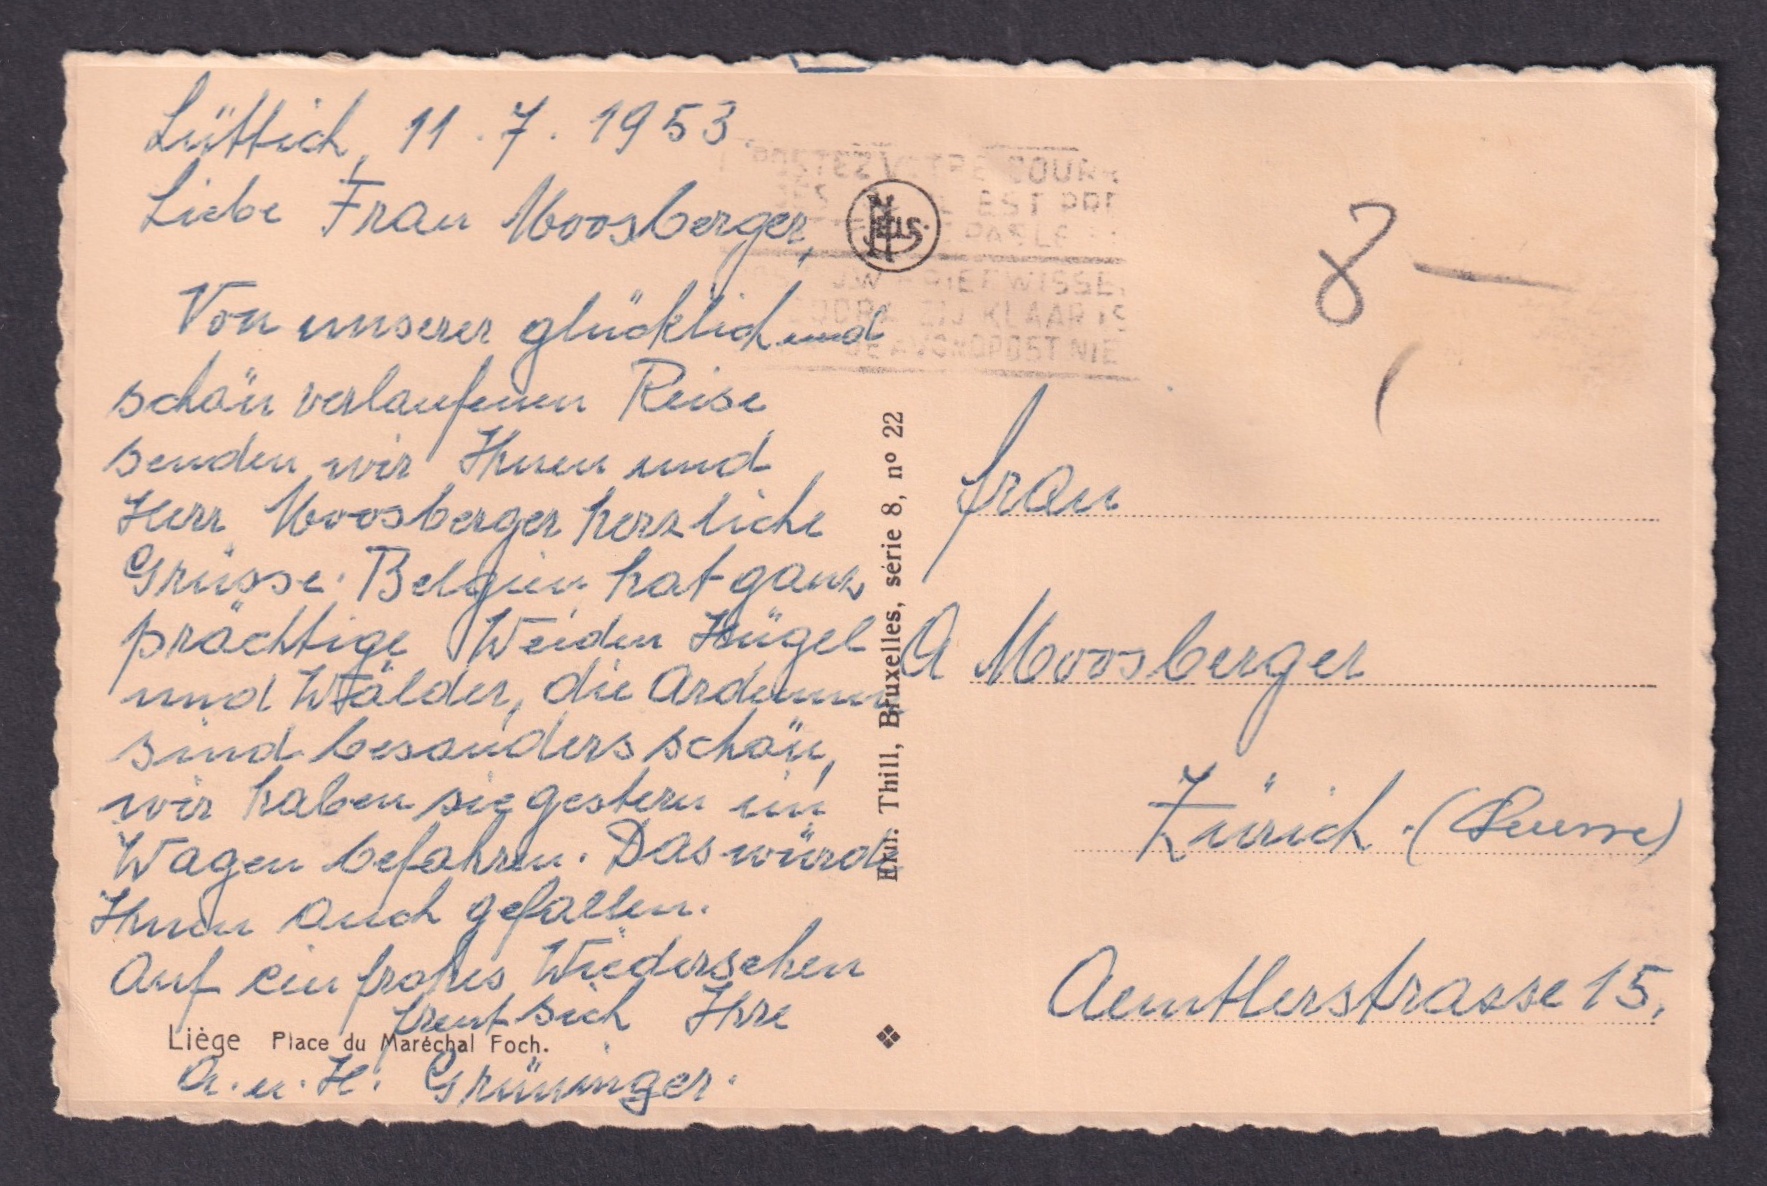 Lüttich, 11.7.1953.
Liebe Frau Moosberger,
Von unserer glücklich und
schön verlaufenen Reise
senden wir Ihnen und
Herr Moosberger herzliche
Grüsse. Belgien hat ganz
prächtige Weiden Hügel
und Wälder, die Ardennen
sind besonders schön,
wir haben sie gestern im
Wagen befahren. Das würde
Ihnen auch gefallen.
Auf ein frohes Wiedersehen
freut sich Ihre
A. u. H. Grüninger.
Liège Place du Maréchal Foch.
NELS
COUR
EST
PAS LE
BRIEF WISSEL
ZIJ KLAAR IS
DE AVONDPOST NIE
Edit. Thill, Bruxelles, série 8, nº 22
8 —
Frau
A Moosberger
Zürich. (Suisse)
Aemtlerstrasse 15.